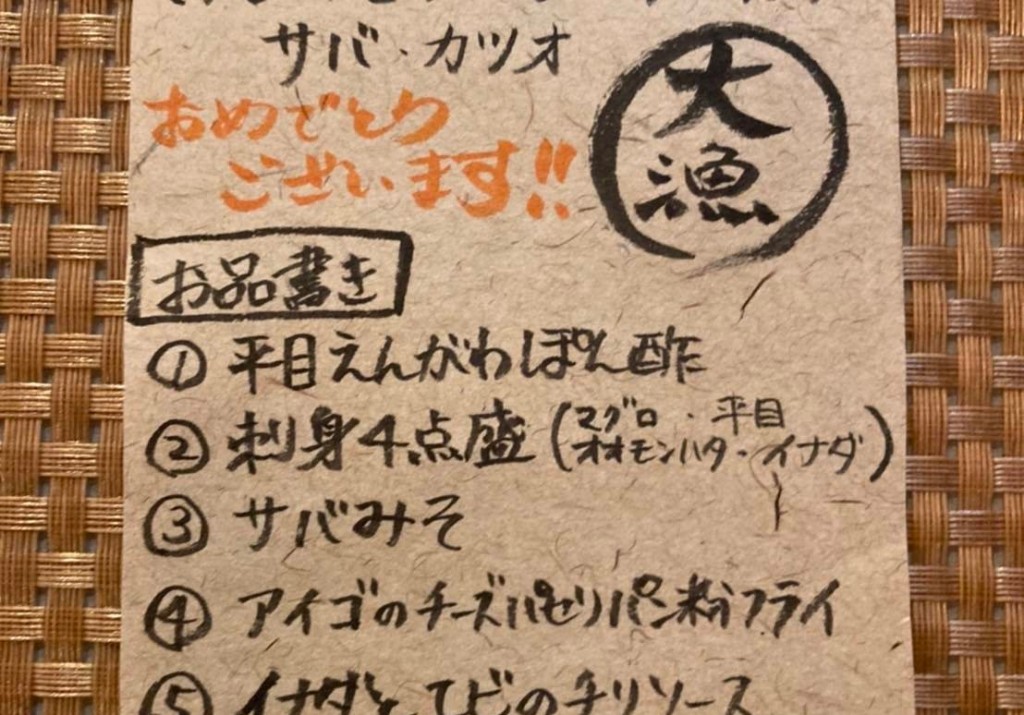 サバ・カツオ
大漁
おめでとう
ございます!!
お品書き
① 平目えんがわぽん酢
② 刺身4点盛(マグロ・平目
オオモンハタ・イナダ)
③ サバみそ
④ アイゴのチーズパセリパン粉フライ
⑤ イナダとエビのチリソース